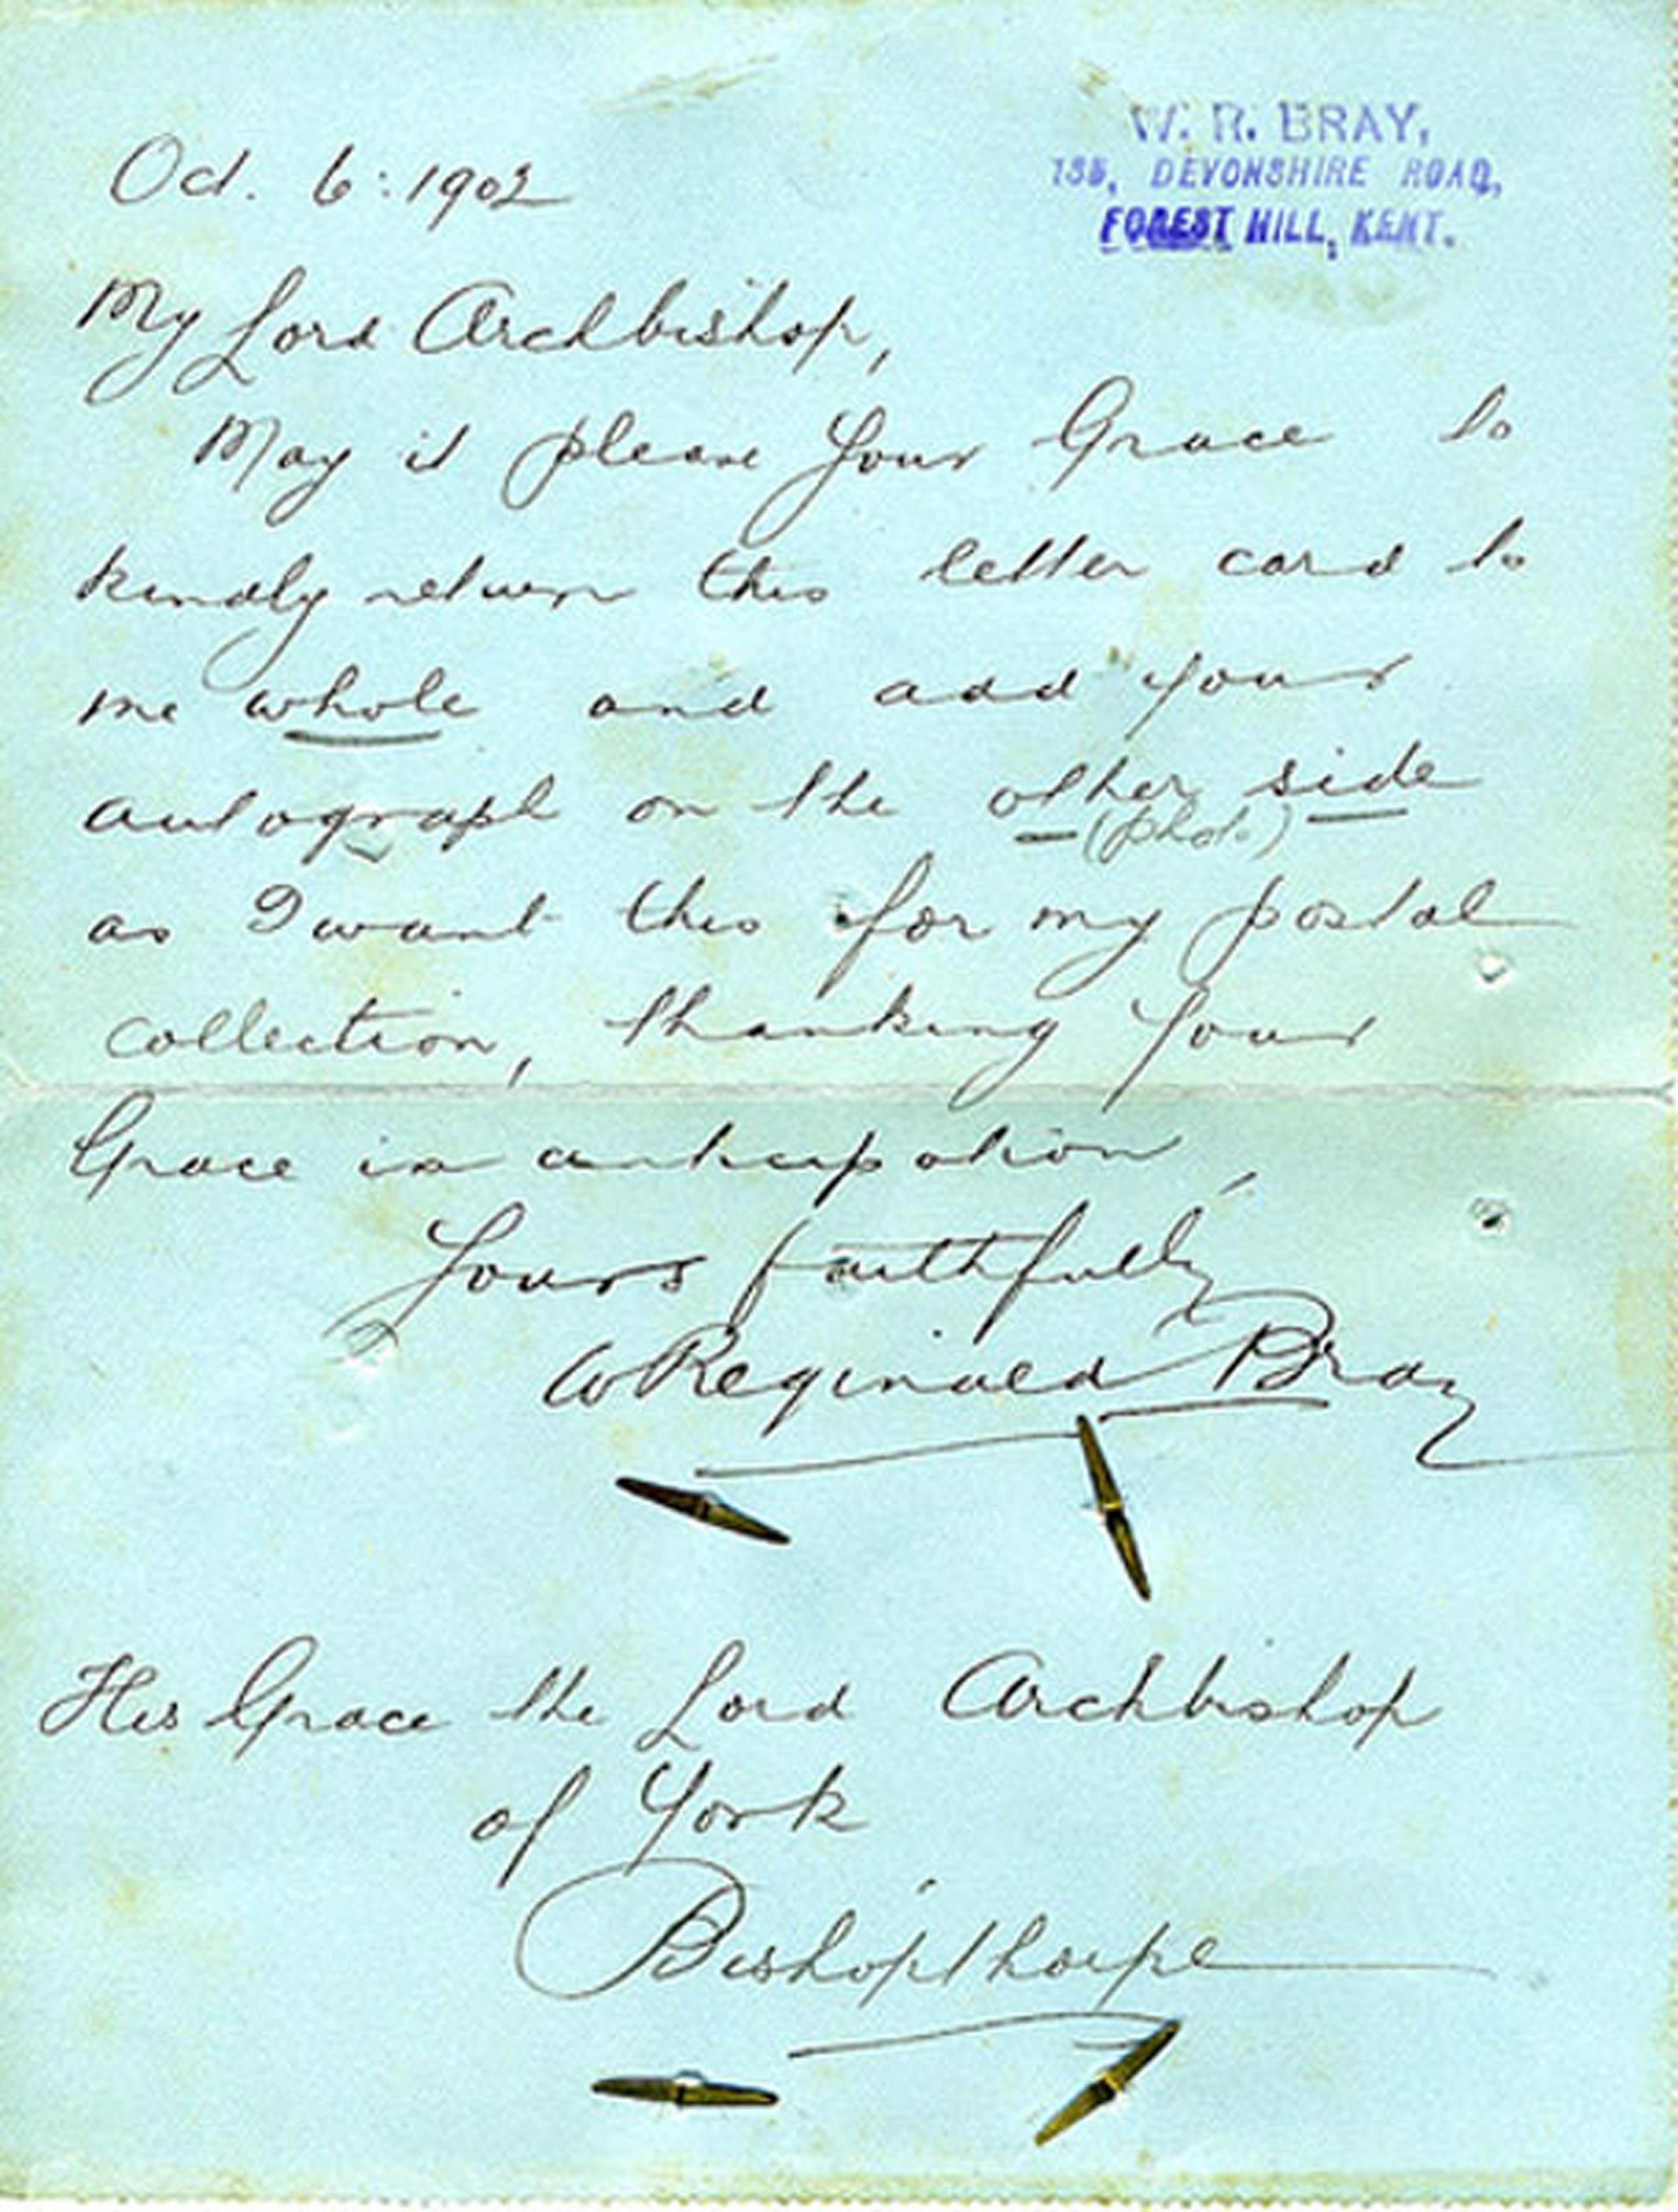 W. R. BRAY,
DEVONSHIRE ROAD,
FOREST HILL, KENT.
Oct. 6: 1902
My Lord Archbishop,
May it please Your Grace to
kindly return this letter card to
me whole and add your
autograph on the other side
(photo)
as I want this for my postal
collection, thanking Your
Grace in anticipation,
Yours faithfully
W Reginald Bray
His Grace the Lord Archbishop
of York
Bishopthorpe